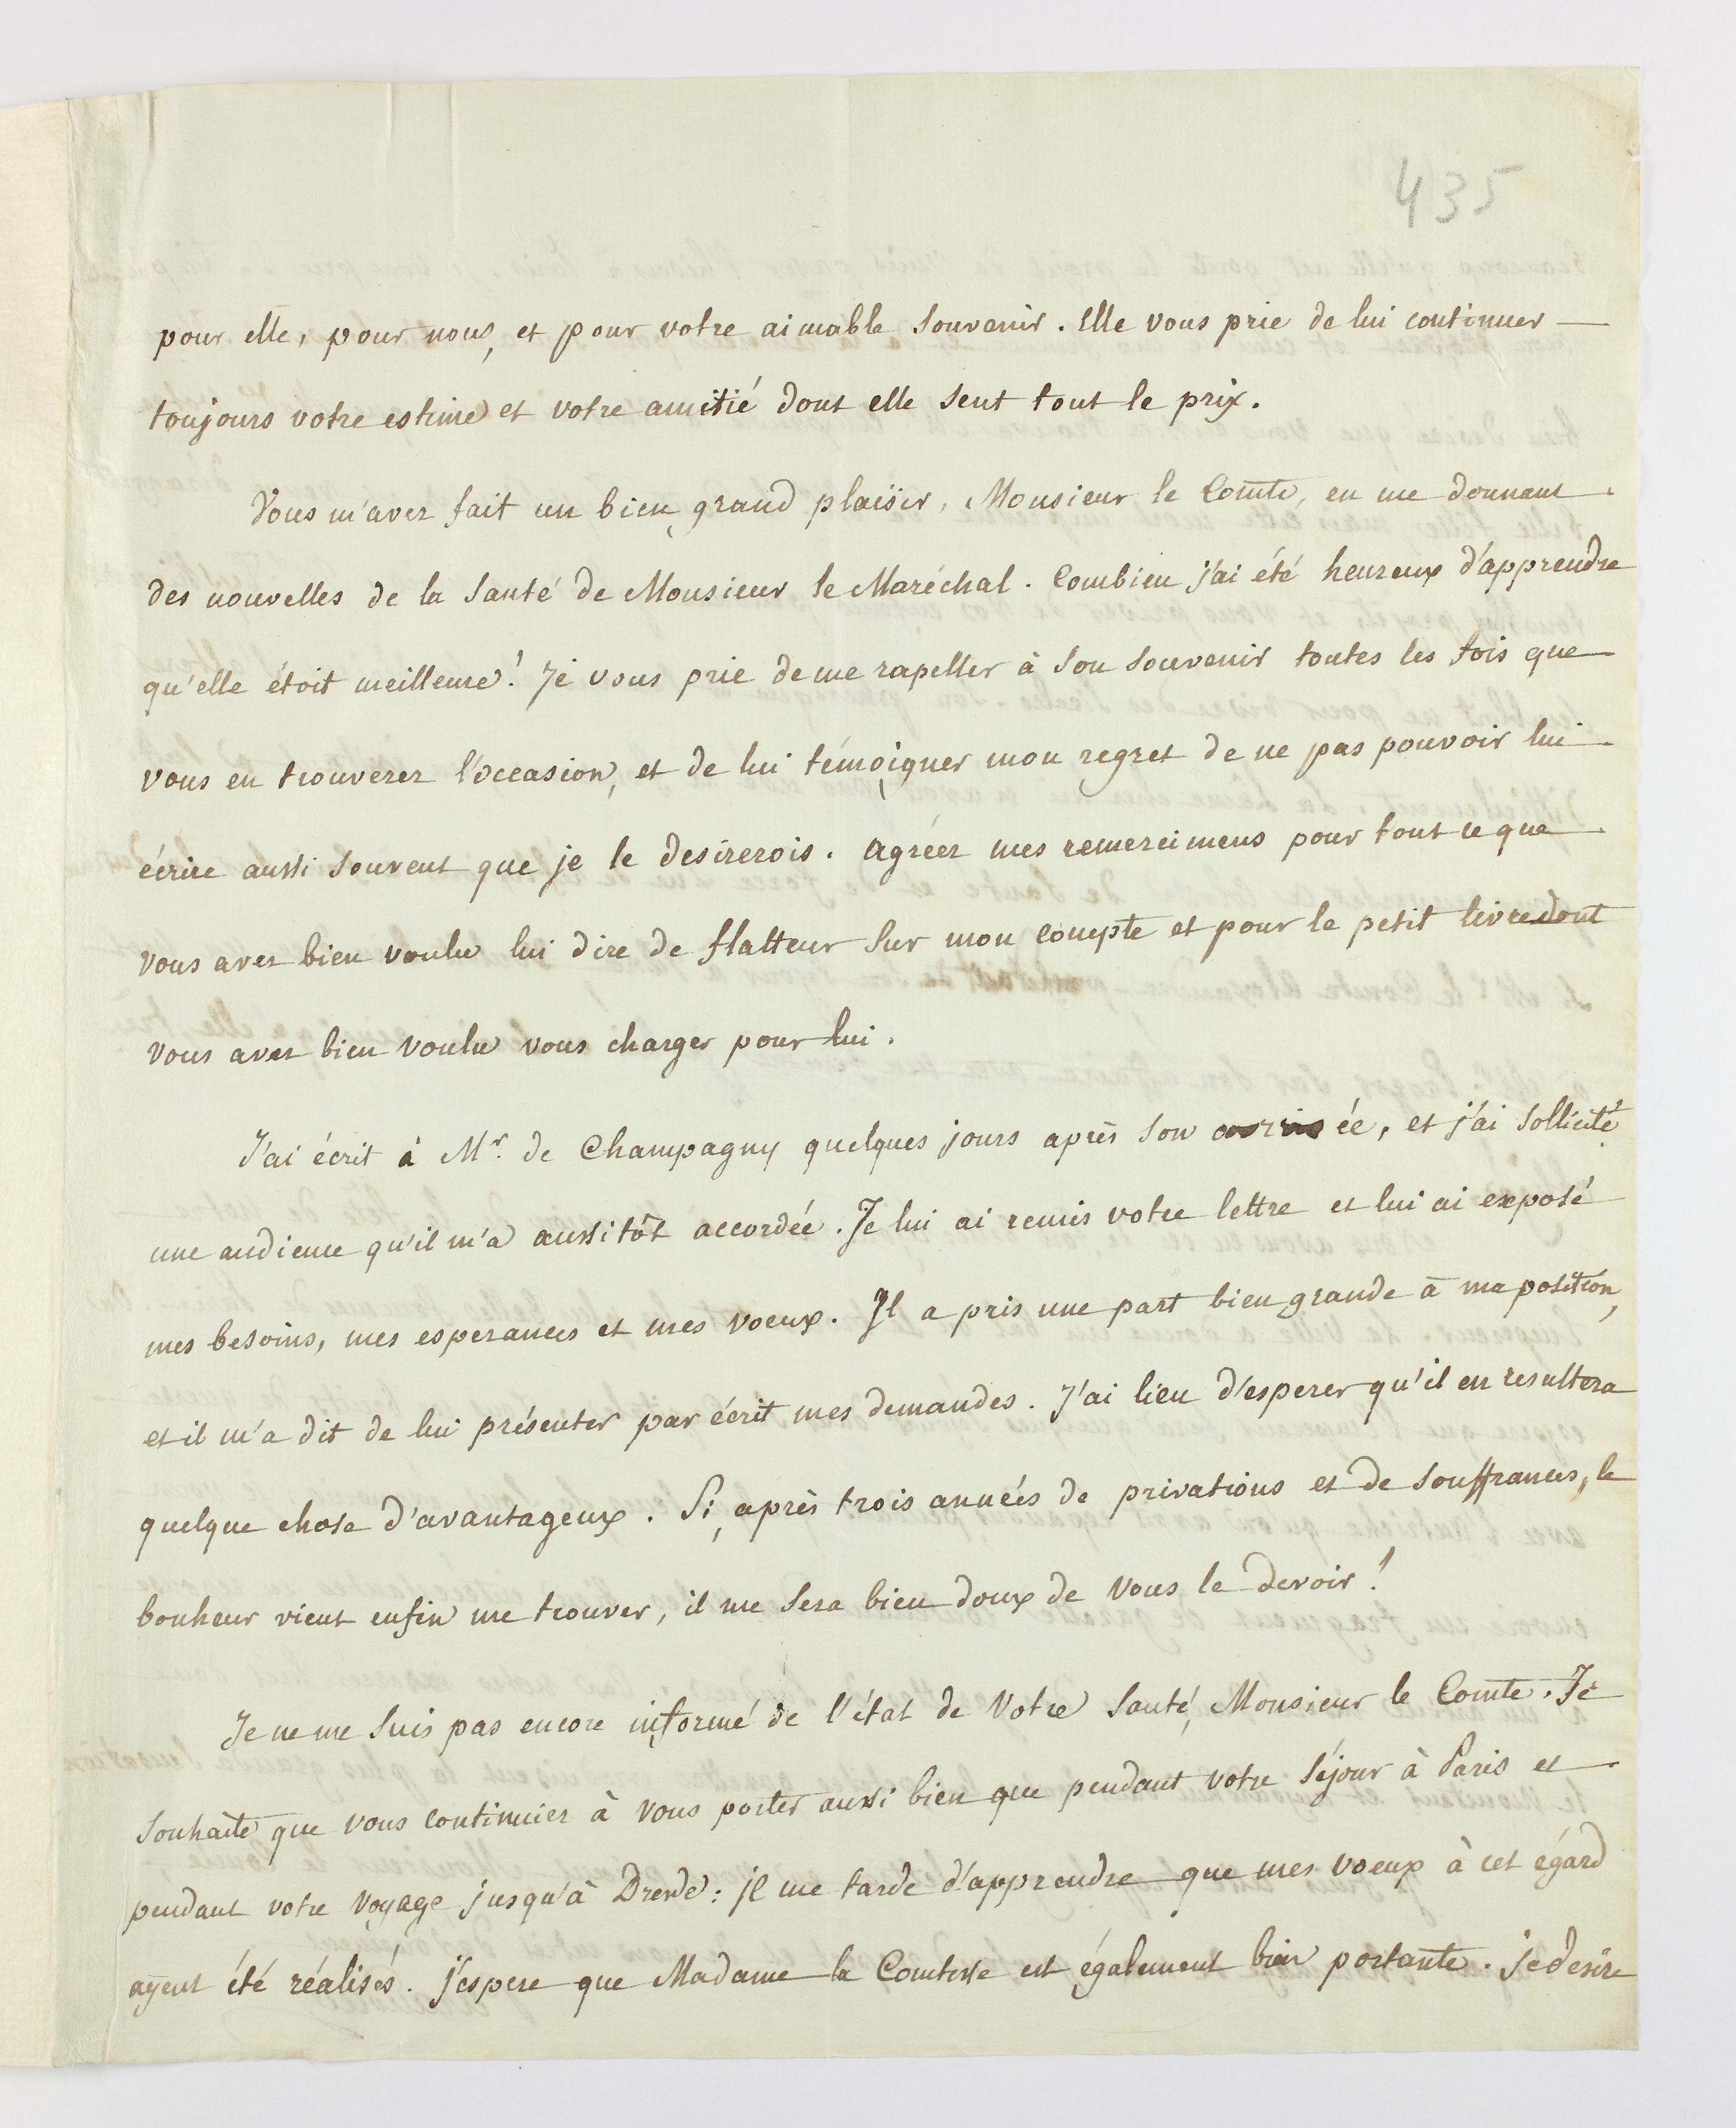 435
pour elle, pour nous, et pour votre aimable souvenir. Elle vous prie de lui continuer —
toujours votre estime et votre amitié dont elle sent tout le prix.
Vous m'avez fait un bien grand plaisir, Monsieur le Comte, en me donnant
des nouvelles de la santé de Monsieur le Maréchal. Combien j'ai été heureux d'apprendre
qu'elle étoit meilleure! Je vous prie de me rapeller à son souvenir toutes les fois que
vous en trouverez l'occasion, et de lui témoigner mon regret de ne pas pouvoir lui
écrire aussi souvent que je le desirerois. Agréez mes remercimens pour tout ce que
vous avez bien voulu lui dire de flatteur sur mon compte et pour le petit livre dont
vous avez bien voulu vous charger pour lui.
J'ai écrit à Mr. de Champagny quelques jours après son arrivée, et j'ai sollicité
une audience qu'il m'a aussitôt accordée. Je lui ai remis votre lettre et lui ai exposé
mes besoins, mes esperances et mes voeux. Il a pris une part bien grande à ma position,
et il m'a dit de lui présenter par écrit mes demandes. J'ai lieu d'esperer qu'il en resultera
quelque chose d'avantageux. Si, après trois années de privations et de souffrances, le
bonheur vient enfin me trouver, il me sera bien doux de vous le devoir!
Je ne me suis pas encore informé de l'état de Votre santé, Monsieur le Comte. Je
souhaite que vous continuiez à vous porter aussi bien que pendant votre séjour à Paris et
pendant votre voyage jusqu'à Dresde: il me tarde d'apprendre que mes voeux à cet égard
ayent été réalisés. J'espere que Madame la Comtesse est également bien portante. Je desire